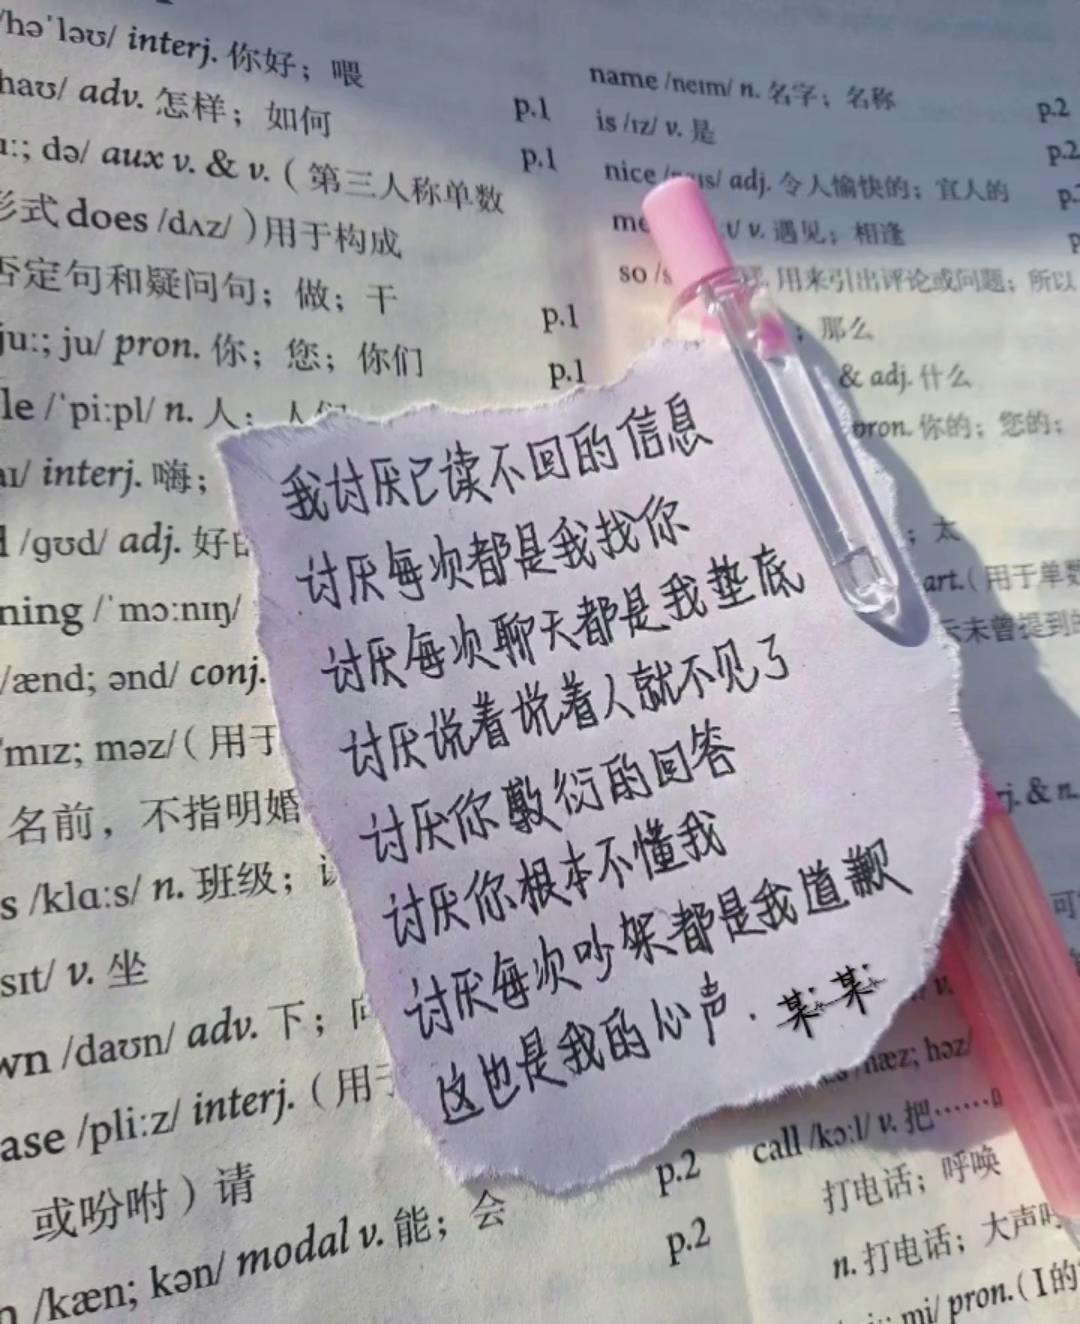 /həˈləʊ/ interj. 你好；喂
haʊ/ adv. 怎样；如何 p.1
ː; də/ aux v. & v.（第三人称单数 p.1
形式 does /dʌz/ ）用于构成
否定句和疑问句；做；干 p.1
juː; ju/ pron. 你；您；你们 p.1
le /ˈpiːpl/ n. 人；人们
aɪ/ interj. 嗨；
/ɡʊd/ adj. 好
ning /ˈmɔːnɪŋ/
/ænd; ənd/ conj.
ˈmɪz; məz/（用于
名前，不指明婚
s /klɑːs/ n. 班级；
sɪt/ v. 坐
wn /daʊn/ adv. 下；向
ase /pliːz/ interj.（用于
或吩咐）请 p.2
n /kæn; kən/ modal v. 能；会 p.2
name /neɪm/ n. 名字；名称 p.2
is /ɪz/ v. 是 p.2
nice /naɪs/ adj. 令人愉快的；宜人的 p.
me t/ v. 遇见；相逢 p
so /s 用来引出评论或问题；所以
；那么
& adj. 什么
pron. 你的；您的；
；太
art.（用于单数
未曾提到的
我讨厌已读不回的信息
讨厌每次都是我找你
讨厌每次聊天都是我垫底
讨厌说着说着人就不见了
讨厌你敷衍的回答
讨厌你根本不懂我
讨厌每次吵架都是我道歉
这也是我的心声.
某某
j. & n.
可
hæz; həz/
call /kɔːl/ v. 把……
打电话；呼唤
n. 打电话；大声呼
mi/ pron.（I的